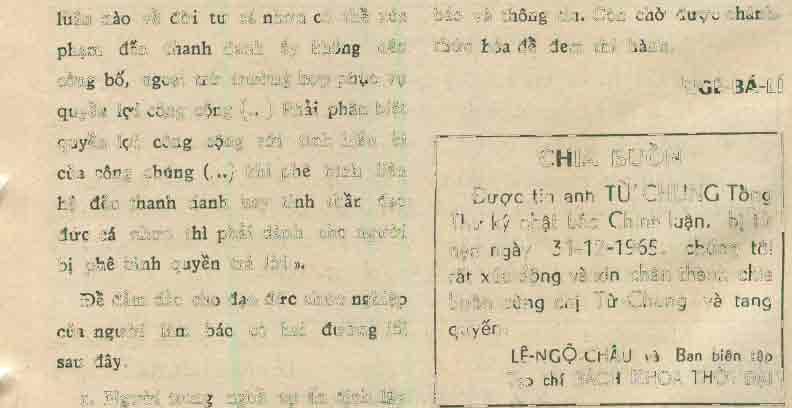 luận nào về đời tư cá nhân có thể xúc
phạm đến thanh danh ấy không
công bố, ngoại trừ trường hợp phục vụ
quyền lợi công cộng (...) Phải phân biệt
quyền lợi công cộng với tính hiếu kì
của công chúng (...) khi phê bình liên
hệ đến thanh danh hay tinh thần đạo
đức cá nhân thì phải dành cho người
bị phê bình quyền trả lời ».
Để đảm cho đạo đức chức nghiệp
của người làm báo có hai đường lối
sau đây.
1. Người trong ngoài ấn định
báo và thông tin. Còn chờ được chánh
thức hóa để đem thi hành.
BÁ-LÍ
CHIA BUỒN
Được tin anh TỪ CHUNG Tổng
Thư ký nhật báo Chính luận, bị tử
nạn ngày 31-12-1965, chúng tôi
rất xúc động và xin chân thành chia
buồn cùng chị Từ Chung và tang
quyến.
LÊ-NGỘ-CHÂU và Ban biên tập
Tạp chí BÁCH KHOA THỜI ĐẠI